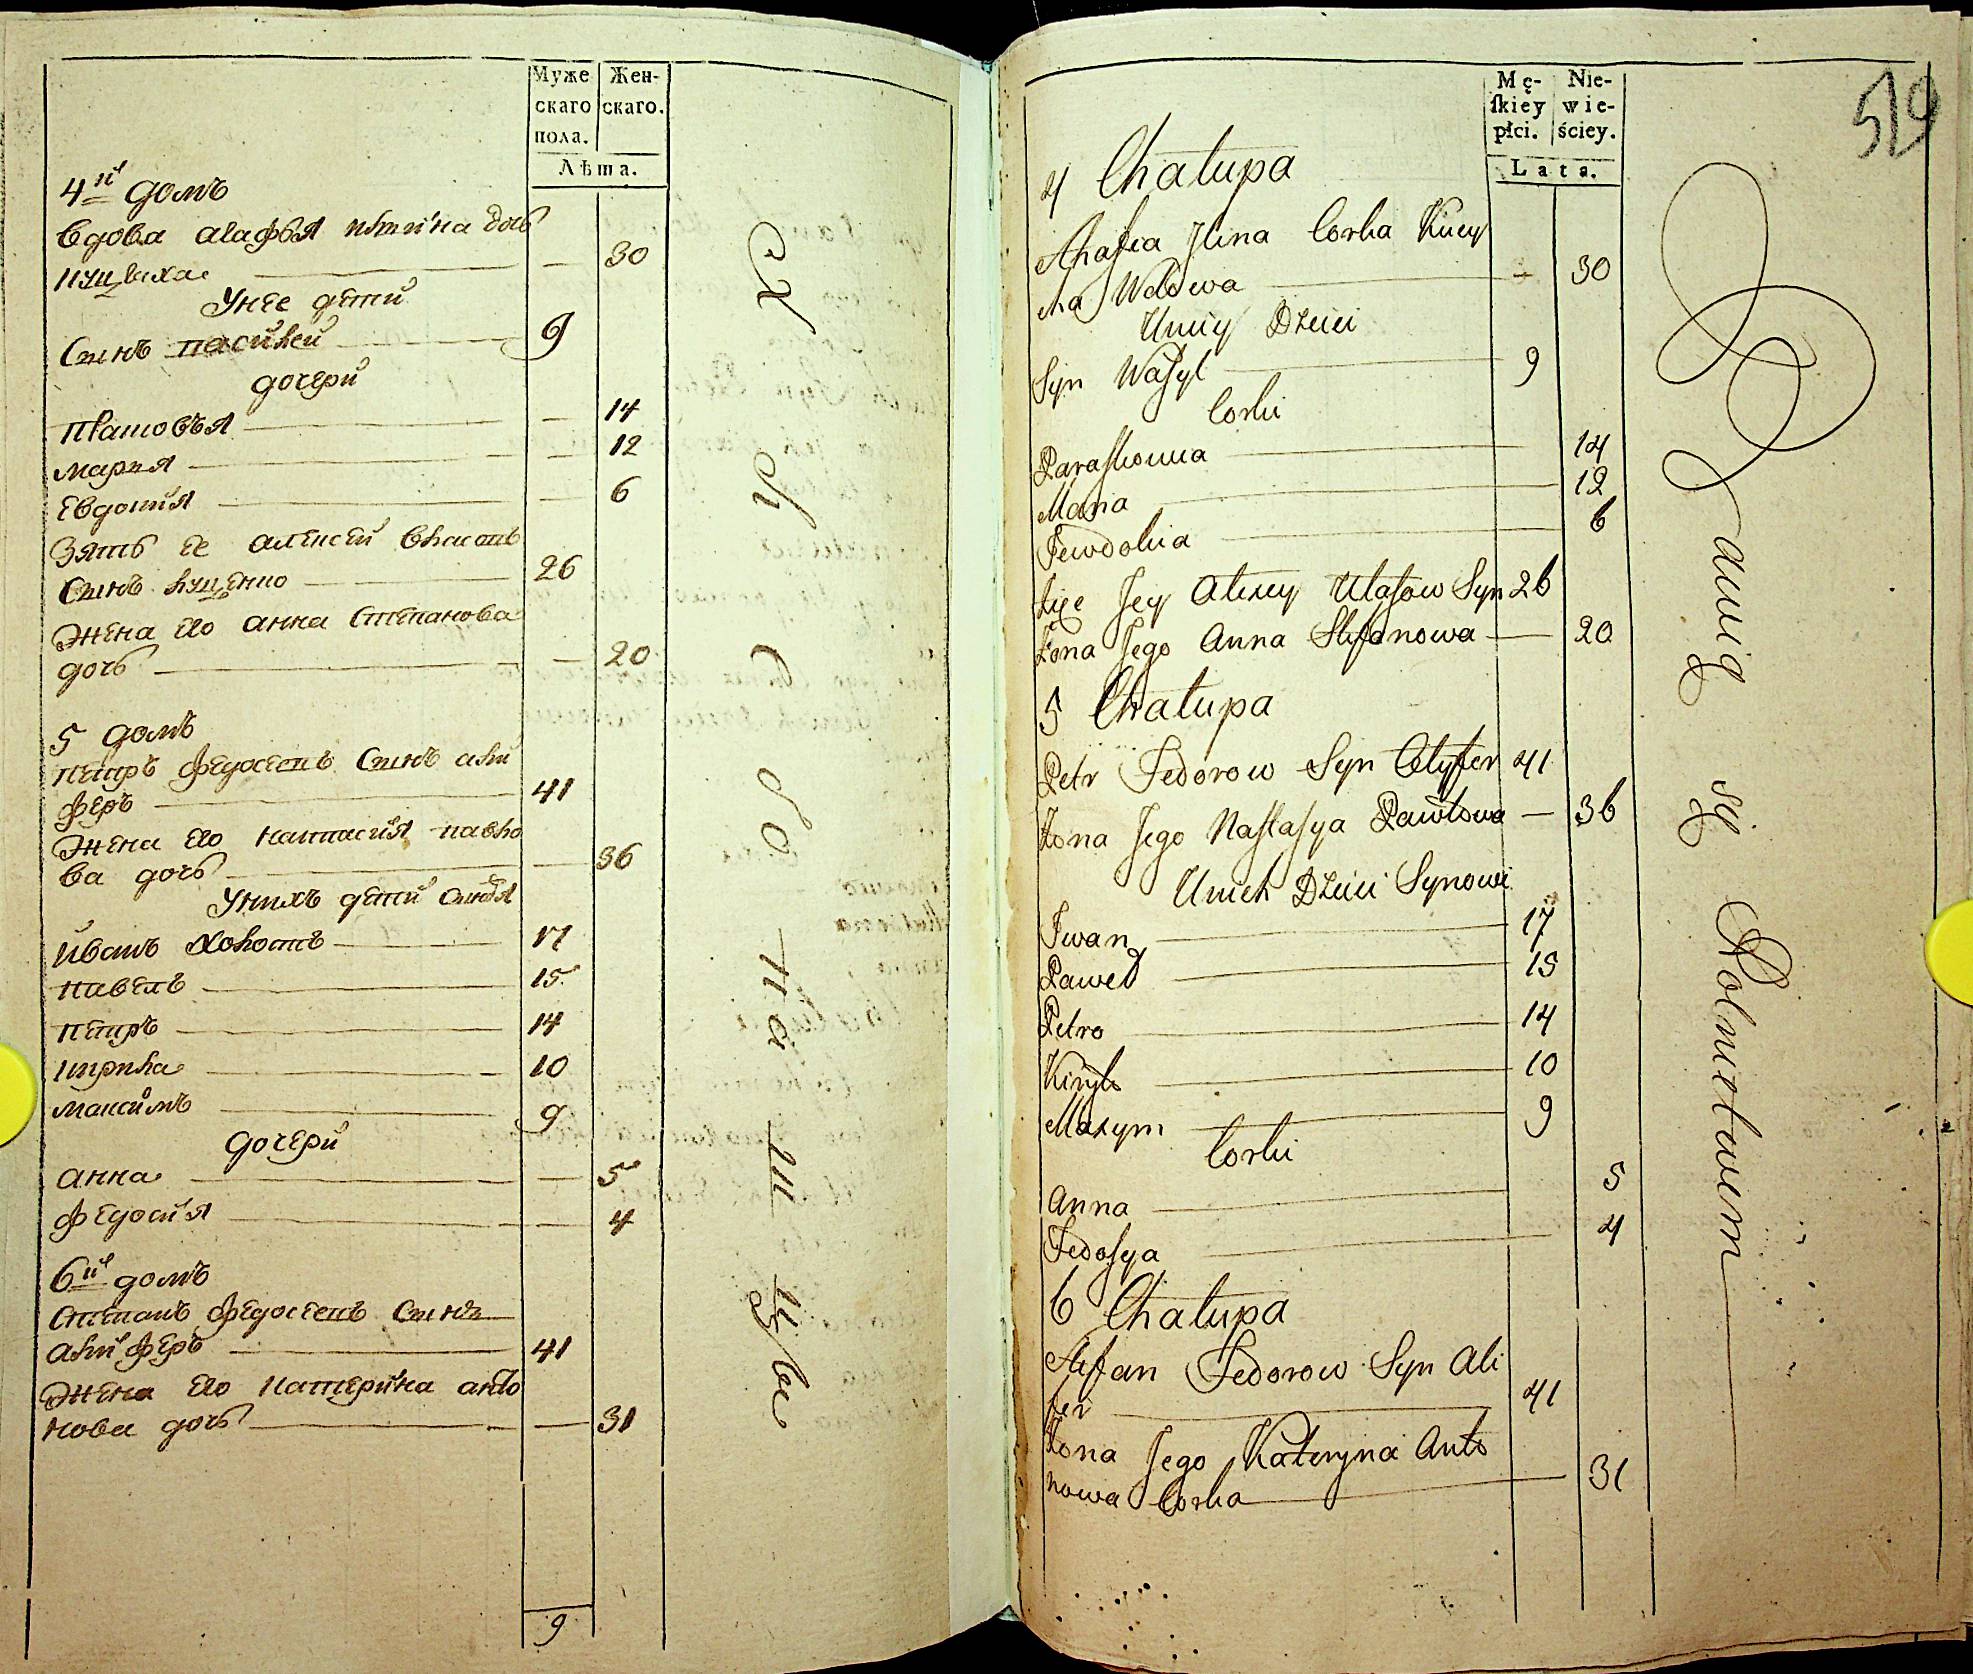 Муже
скаго
пола.
Жен-
скаго.
Лѣта.
4й домъ
вдова агафья дочь
30
Унее дети
Синъ василей 9
дочери
14
мария 12
Евдокия 6
Зять ее алексей власовъ
синъ куценко 26
жена его анна степанова
дочь 20
5 домъ
петръ федосеевъ синъ али
феръ 41
жена его настасия павло
ва дочь 36
Унихъ дети синовя
иванъ холостъ 17
павелъ 15
петръ 14
кирила 10
максимъ 9
дочери
анна 5
федосия 4
6й домъ
степанъ федосеевъ синъ
алиферъ 41
жена его катерина анто
нова дочь 31
9
Mę-
ſkiey
płci.
Nie-
wie-
ściey.
Lata.
519
4 Chałupa
Ahafia Jlina Corka Kucy
ha Wdowa 30
Uniey Dzieci
Syn Wasyl 9
Corki
Paraskowia 14
Maria 12
Jewdokia 6
Zięć Jey Alexey Ułasow Syn 26
Żona Jego Anna Stefanowa 20
5 Chałupa
Petr Fedorow Syn Olyfer 41
Żona Jego Nastasya Pawłowa 36
Unich Dzieci Synowi
Iwan 17
Paweł 15
Petro 14
Kiryło 10
Maxym 9
Corki
Anna 5
Fedosya 4
6 Chałupa
Stefan Fedorow Syn Ali
fer 41
Żona Jego Kateryna Anto
nowa Corka 31
się Rolnictwem